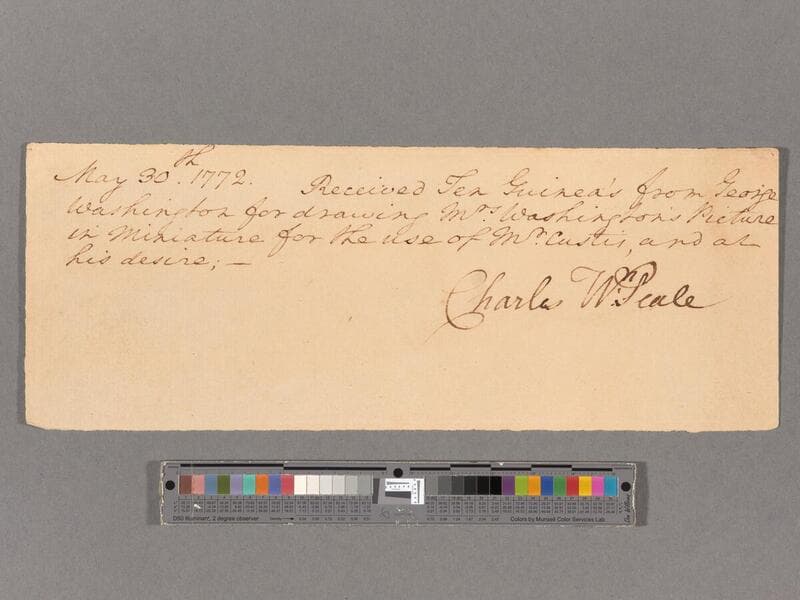 May 30th. 1772. Received Ten Guinea's from George
Washington for drawing Mrs. Washingtons Picture
in Miniature for the use of Mr. Custis, and at
his desire; —
Charles Wn. Peale
D50 Illuminant, 2 degree observer
Colors by Munsell Color Services Lab